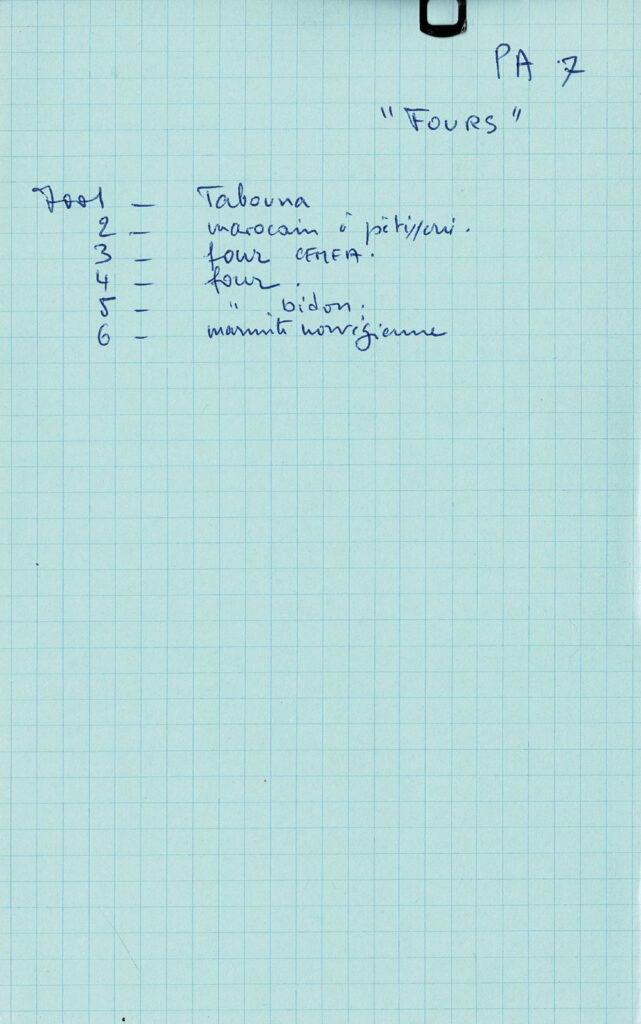 PA 7
"FOURS"
7001 — Tabouna
2 — marocain à pâtisserie.
3 — four CEMEA.
4 — four.
5 — " bidon.
6 — marmite norvégienne